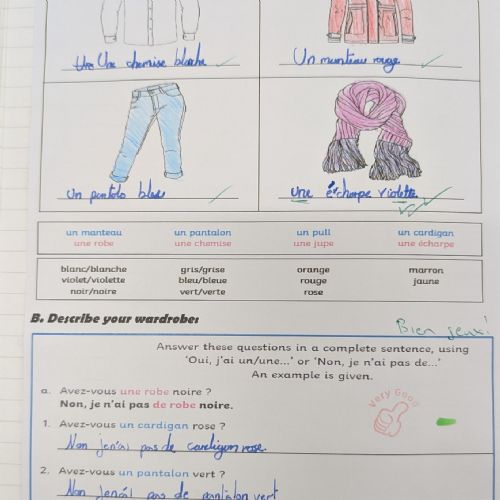 Une chemise blache
Un manteau rouge
Un pantolo bleu
Une écharpe violette
un manteau un pantalon un pull un cardigan
une robe une chemise une jupe une écharpe
blanc/blanche gris/grise orange marron
violet/violette bleu/bleue rouge jaune
noir/noire vert/verte rose
B. Describe your wardrobes
Bien
Answer these questions in a complete sentence, using
'Oui, j'ai un/une...' or 'Non, je n'ai pas de...'
An example is given.
a. Avez-vous une robe noire ?
Non, je n'ai pas de robe noire.
Very Good
1. Avez-vous un cardigan rose ?
Non jen'ai pas de cardigan rose.
2. Avez-vous un pantalon vert ?
Non jen'ai pas de pantalon vert